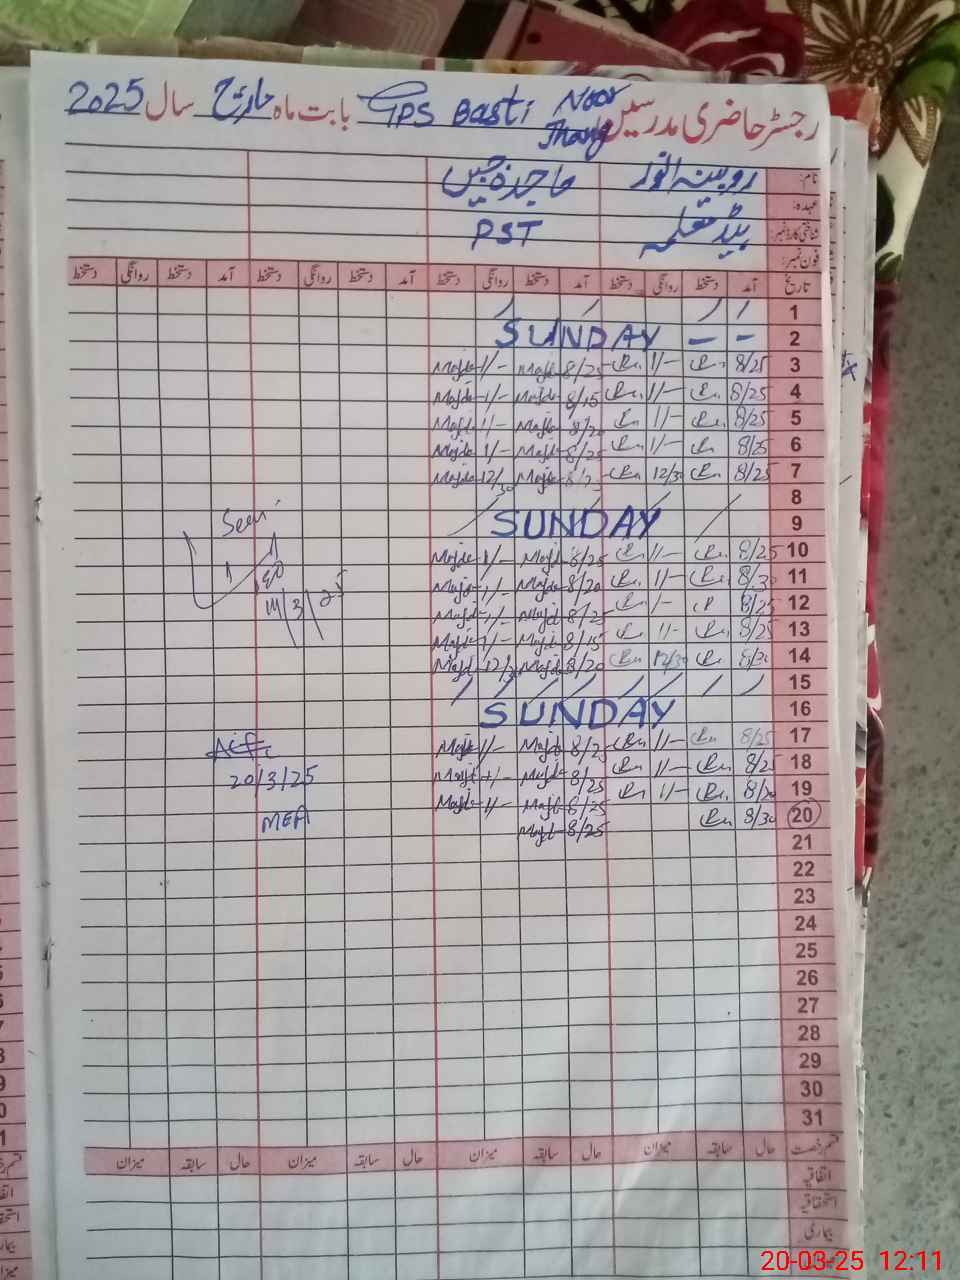 رجسٹر حاضری مدرسین GPS Basti Noor Jhang بابت ماہ مارچ سال 2025
نام: روبینہ انور ماجدہ جبیں
عہدہ: ہیڈ معلمہ PST
شناختی کارڈ نمبر:
فون نمبر:
تاریخ آمد دستخط روانگی دستخط آمد دستخط روانگی دستخط آمد دستخط روانگی دستخط آمد دستخط روانگی دستخط
1
2 SUNDAY
3 8/25 1/- 8/25 Majda 1/- Majda
4 8/25 1/- 8/15 Majda 1/- Majda
5 8/25 1/- 8/20 Majda 1/- Majda
6 8/25 1/- 8/25 Majda 1/- Majda
7 8/25 12/30 Majda 12/30 Majda
8
9 SUNDAY
Seen
10 8/25 1/- 8/25 Majda 1/- Majda
11 8/30 1/- 8/20 Majda 1/- Majda
12 8/25 1/- 8/25 Majda 1/- Majda
14/3/25
13 8/25 1/- 8/15 Majda 1/- Majda
14 8/30 12/30 8/20 Majda 12/30 Majda
15
16 SUNDAY
17 8/25 1/- 8/25 Majda 1/- Majda
18 8/25 1/- 8/25 Majda 1/- Majda
20/3/25
19 8/20 1/- 8/25 Majda 1/- Majda
MEA
20 8/30 8/25 Majda
21
22
23
24
25
26
27
28
29
30
31
قسم رخصت حال سابقہ میزان حال سابقہ میزان حال سابقہ میزان حال سابقہ میزان
اتفاقیہ
استحقاقیہ
بیماری
میزان
20-03-25 12:11